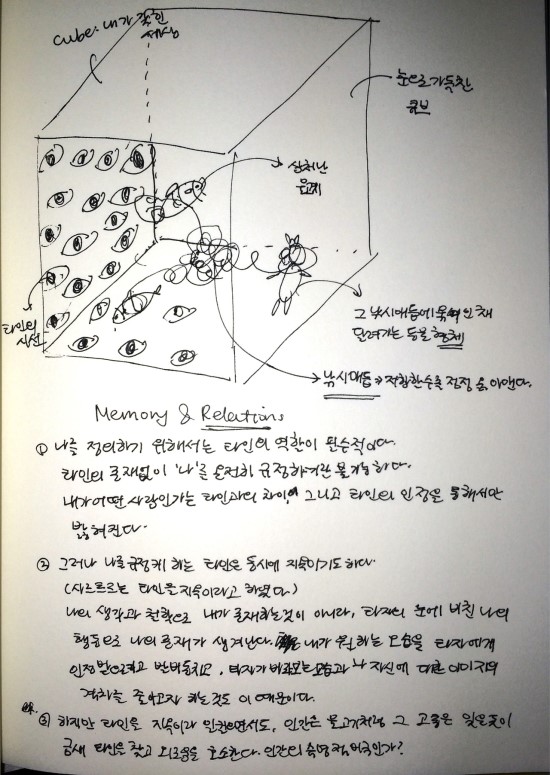 cube: 내가 갇힌
세상
눈으로 가득찬
큐브
상처난
물고기
타인의
시선
그 낚시매듭에 묶여인채
딸려가는 동물 형체
낚시매듭 →
Memory & Relations
① 나를 정의하기 위해서는 타인의 역할이 필수적이다.
타인의 존재없이 '나'를 온전히 규정하기란 불가능하다.
내가 어떤 사람인가는 타인과의 차이, 그리고 타인의 인정을 통해서만
밝혀진다.
② 그러나 나를 규정케 하는 타인은 동시에 지옥이기도 하다.
(사르트르는 타인을 지옥이라고 하였다)
나의 생각과 철학으로 내가 존재하는것이 아니라, 타자의 눈에 비친 나의
행동으로 나의 존재가 생겨난다. 내가 원하는 모습을 타자에게
인정받으려고 발버둥치고, 타자가 바라보는 모습과 나 자신에 대한 이미지의
격차를 줄이고자 하는것도 이 때문이다.
③ 하지만 타인을 지옥이라 인식하면서도, 인간은 물고기처럼 그 고통은 잊은듯이
금새 타인을 찾고 외로움을 호소한다. 인간의 숙명적 비극인가?